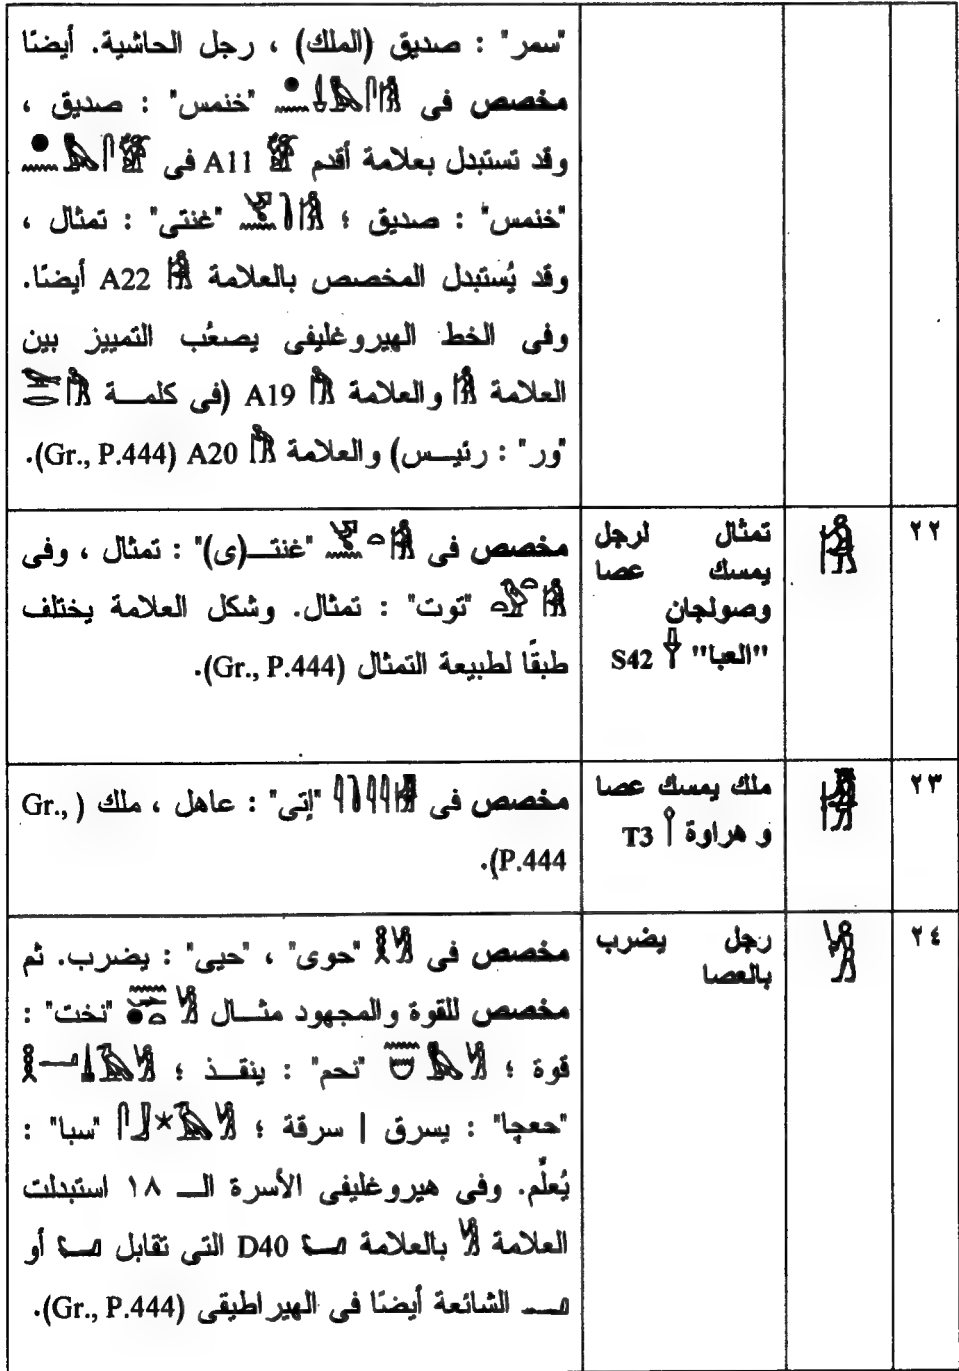 "سمر" : صديق (الملك) ، رجل الحاشية. أيضًا
مخصص فى "خنمس" : صديق ،
وقد تستبدل بعلامة أقدم A11 فى
"خنمس" : صديق ؛ "غنتى" : تمثال ،
وقد يُستبدل المخصص بالعلامة A22 أيضًا.
وفى الخط الهيروغليفى يصعُب التمييز بين
العلامة والعلامة A19 (فى كلمــة
"ور" : رئيــس) والعلامة A20 (Gr., P.444).
٢٢
تمثال لرجل
يمسك عصا
وصولجان
"العبا" S42
مخصص فى "غنتــ(ى)" : تمثال ، وفى
"توت" : تمثال. وشكل العلامة يختلف
طبقًا لطبيعة التمثال (Gr., P.444).
٢٣
ملك يمسك عصا
و هراوة T3
مخصص فى "إتى" : عاهل ، ملك (Gr.,
P.444).
٢٤
رجل يضرب
بالعصا
مخصص فى "حوى" ، "حيى" : يضرب. ثم
مخصص للقوة والمجهود مثــال "نخت" :
قوة ؛ "نحم" : ينقــذ ؛
"حعجا" : يسرق | سرقة ؛ "سبا" :
يُعلَّم. وفى هيروغليفى الأسرة الــ ١٨ استبدلت
العلامة بالعلامة D40 التى تقابل أو
الشائعة أيضًا فى الهيراطيقى (Gr., P.444).